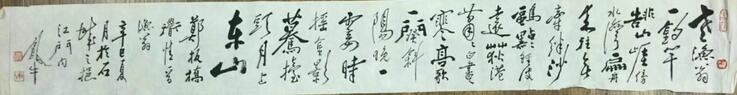 老漁翁
一釣竿
靠山崖傍
水湾扁舟
来往無
牽絆沙
鷗點點輕波
遠荻港
蕭蕭白晝
寒高歌
一曲斜
陽晚一
霎時波
摇金影
驀擡
頭月上
東山
鄭板橋
道情
漁翁
辛巳夏
月於石
城之